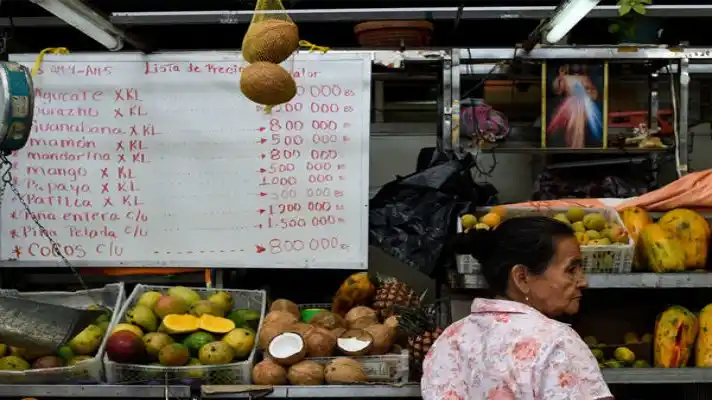 Lista de Precio alor
Aguacate X KL 000 BS
Durazno X KL 000 BS
Guanabana X KL 800 000 BS
mamón X KL 500 000 BS
* mandarina X KL 800 000 BS
* mango X KL 500 000 BS
* Papaya X KL 1000 000 BS
* Patilla X KL 500 000 BS
* Piña entera c/u 1.200 000 BS
* Piña Pelada c/u 1.500 000 BS
* COCOS c/u 800 000 BS